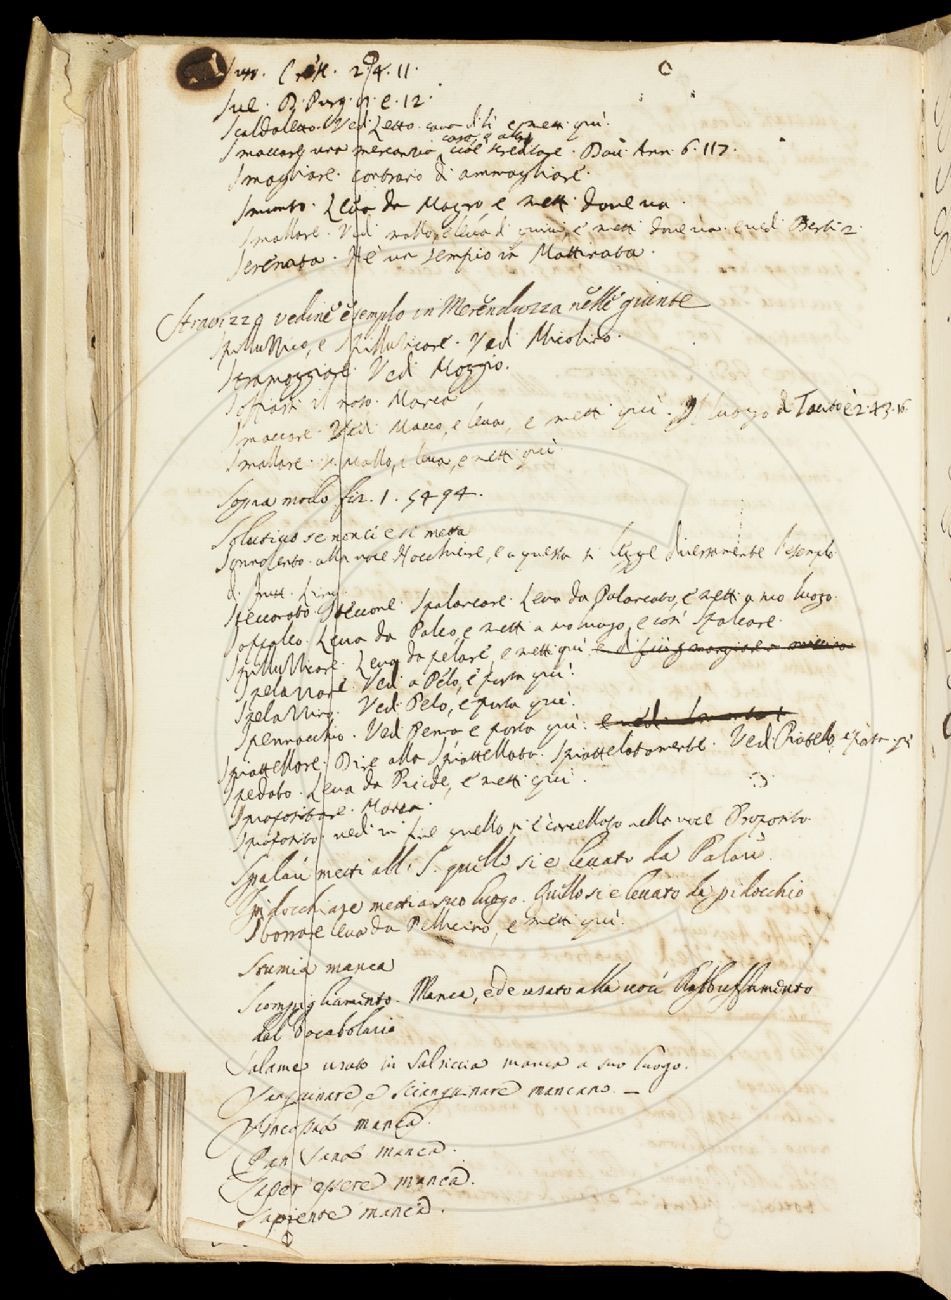 Suo. Cresc. 2. 4. 11.
Sue. B. Purg. 12.
Scaldaletto. Vedi Letto. cava di lì e metti quì.
Smaccare una mercanzia, cioè screditare. Dav. Ann. 6. 117.
Smagliare. contrario di ammagliare.
Smunto. Leva da Magro e metti dove va.
Smallare. Vedi mallo, e leva di quivi, e metti dove và. e vedi Berti. 2.
Serenata. N'è un sempio in Mattinata.
Stravizzo vedine esemplo in Merenduzza nelle giunte
Spilluzzico, e Spilluzzicare. Vedi Miccino.
Stramoggiare. Vedi Moggio.
Soffiarsi il naso. Manca
Smaccare. Vedi Macco, e leva, e metti quì. Il luogo di Tacito è 2. 43. 16.
Smallare. in mallo, e leva, e metti quì.
Sopra modo fir. 1. 5494.
Solutivo se non ci è si metta
Sonnolento. alla voce Nocchiere, e a questa si legge diversamente l'esemplo
di frutt. Ling.
Steccato. Steccone. Spalancare. Leva da Palancato, e metti a suo luogo.
Soppalco. Leva da Palco, e metti a suo luogo, e così Spalcare.
Spilluzzicare. Leva da pelare, e metti quì
Spelazzare. Vedi a Pelo, e porta quì.
Spelazzino. Vedi Pelo, e porta quì.
Spennacchio. Vedi Penna e porta quì.
Spiattellare. Dire alla Spiattellata. Spiattellatamente. Vedi Piattello, e porta quì
Spedato. Leva da Piede, e metti quì.
Spropositare. Manca.
Sproposito. vedi in fine quello si è cancellato nella voce Proposito
Spalare metti all' S. quello si è levato da Palare.
Spidocchiare metti a suo luogo. Quello si è levato da pidocchio
leva da Pelliccino, e metti quì.
Scumia manca
Scompigliamento. Manca, ed è usato alla voce Rabbuffamento
dal Vocabolario
Salame usato in Salsiccia manca a suo luogo.
Sanguinare, e Scianguinare mancano. —
manca.
manca.
Saper essere manca.
Sapiente manca.